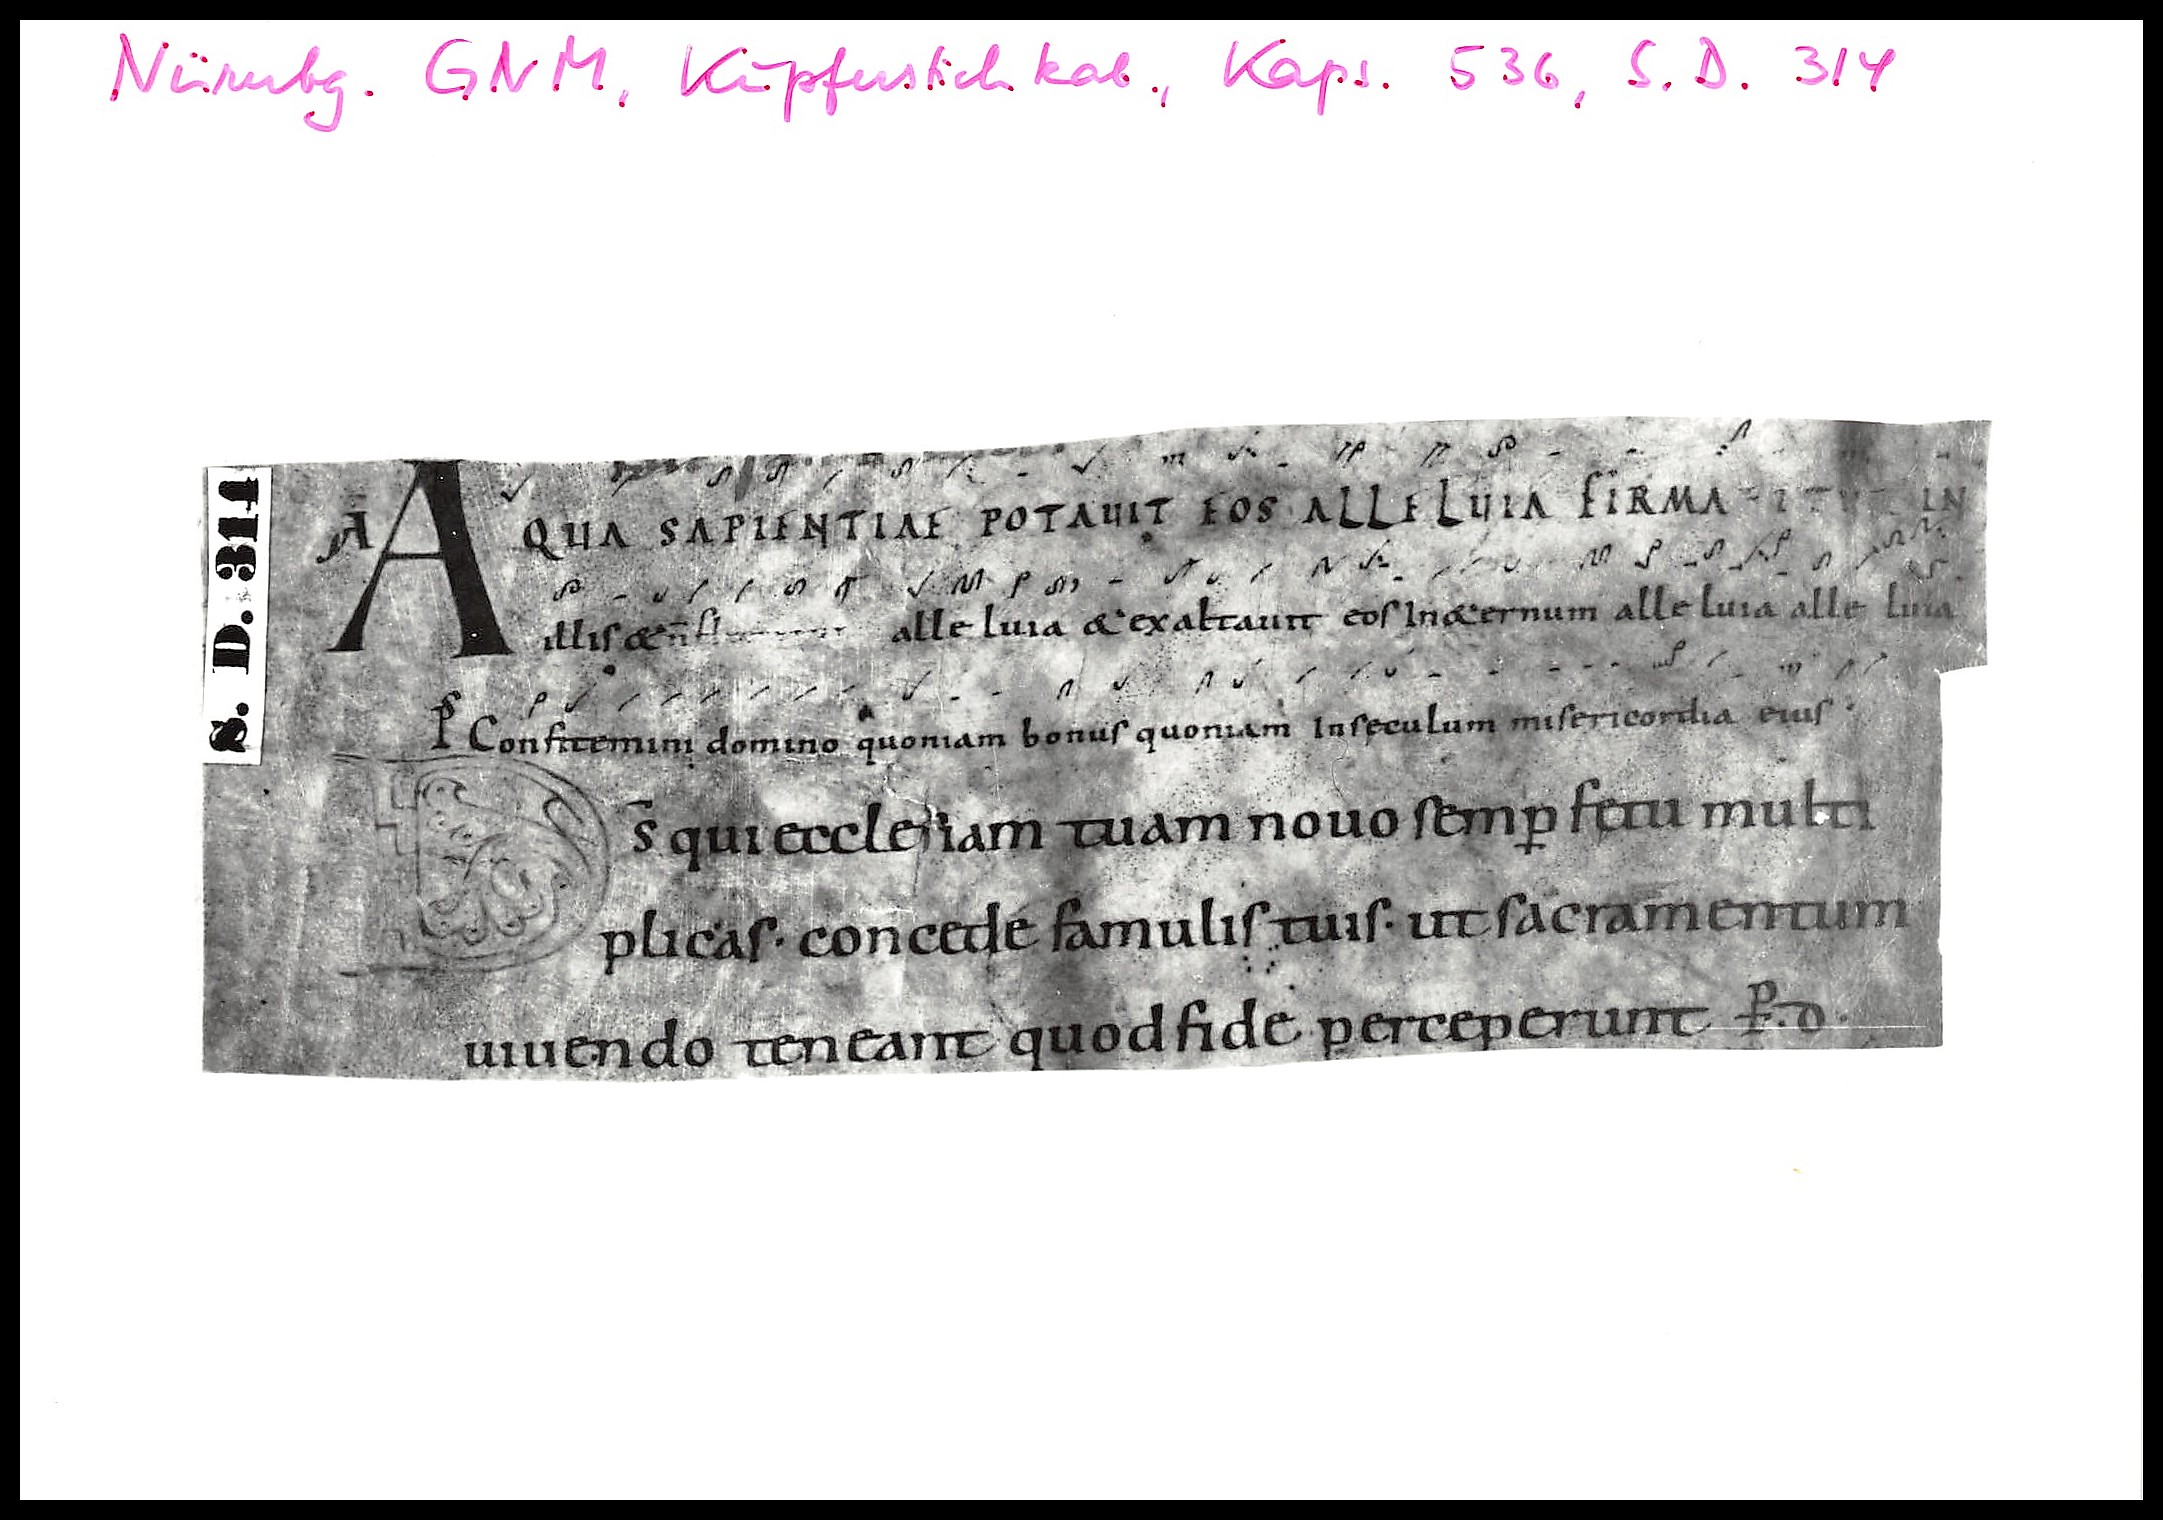 Nürnbg. GNM, Kupferstichkab., Kaps. 536, S.D. 314
S. D. 314
A AQUA SAPIENTIAE POTAUIT EOS ALLELUIA FIRMA IN
illis & ñ alleluia & exaltauit eos In&ernum alleluia alleluia
Confitemini domino quoniam bonus quoniam Inseculum misericordia eius
D s̄ qui ecclesiam tuam nouo semp̱ fetu multi
plicas· concede famulis tuis· ut sacramentum
uiuendo teneant quod fide perceperunt P. d·